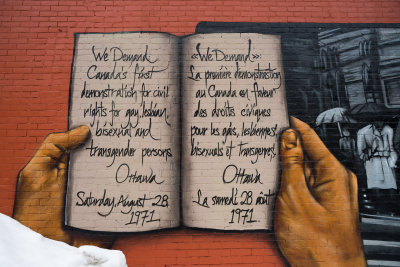 We Demand
Canada's first
demonstration for civil
rights for gay, lesbian,
bisexual and
transgender persons
Ottawa
Saturday, August 28,
1971
«We Demand»:
La première démonstration
au Canada en faveur
des droits civiques
pour les gais, lesbiennes,
bisexuels et transgenres,
Ottawa
La samedi 28 août
1971